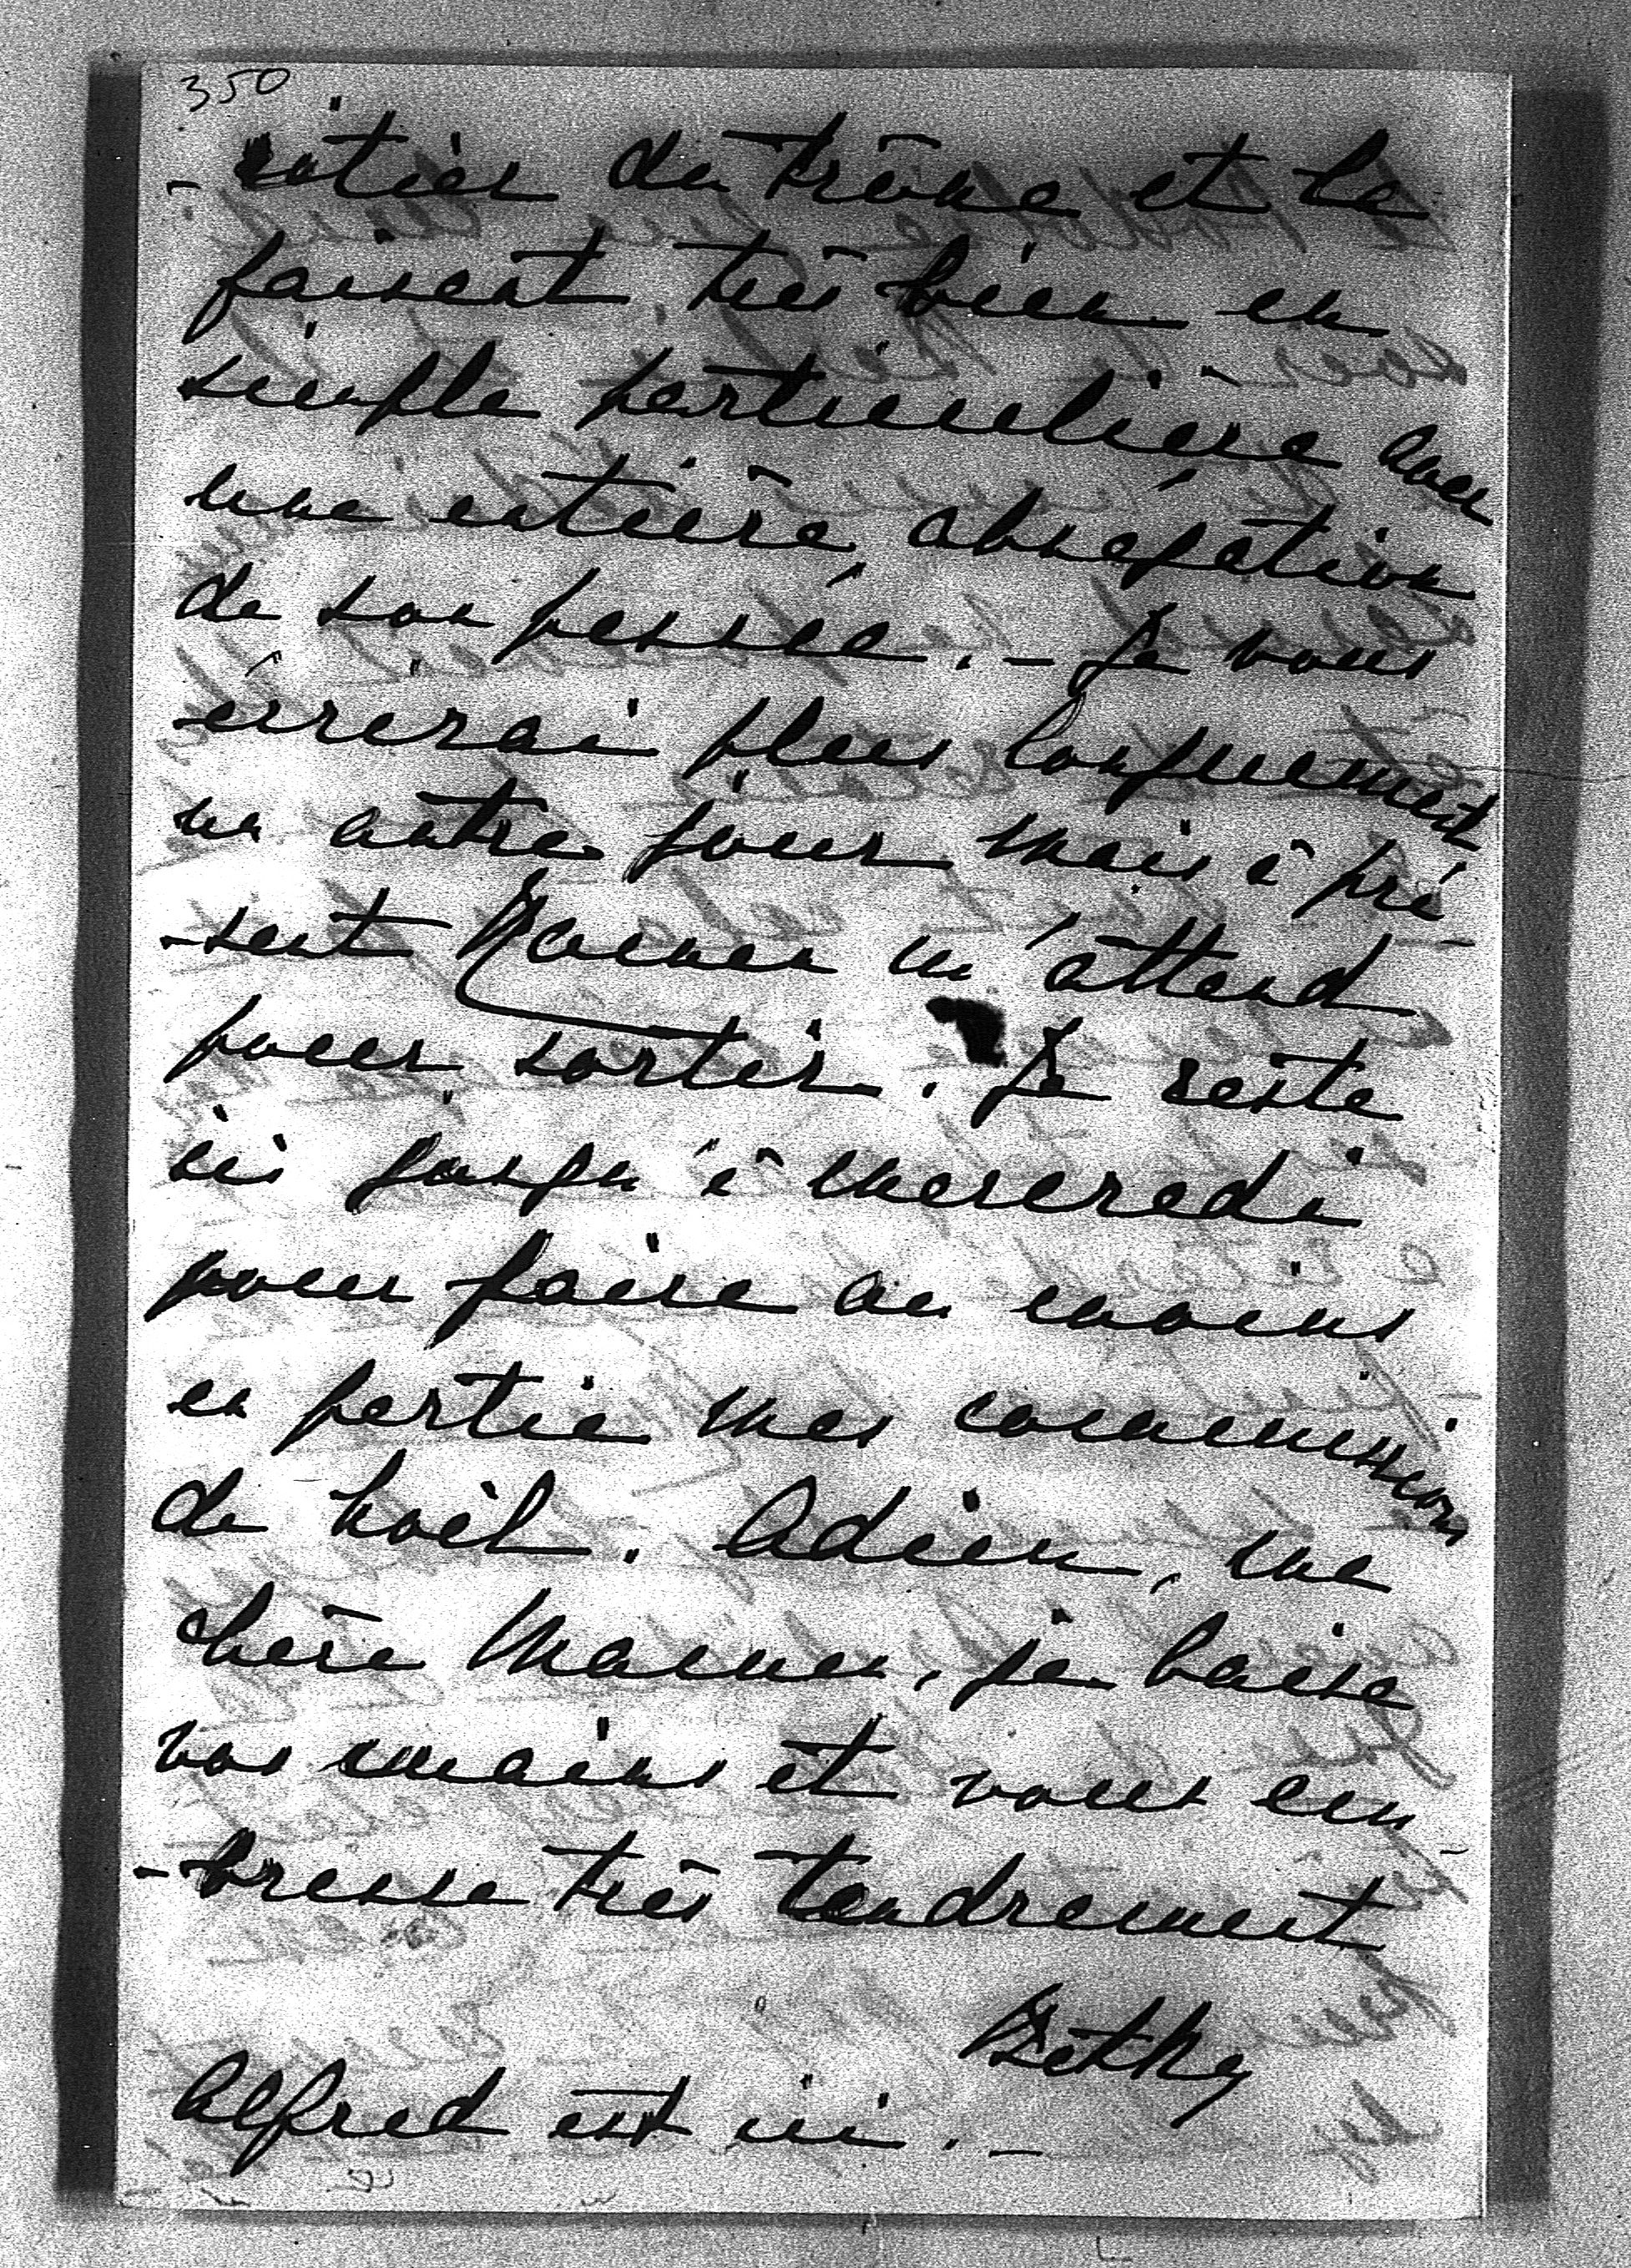 350
-ritier du trône et le
faisant très bien en
simple particulière avec
une entière abnégation
de son passé. - Je vous
écrirai plus longuement
un autre jour mais à pré-
-sent Maman m'attend
pour sortir. Je reste
ici jusqu'à mercredi
pour faire au moins
en partie mes commissions
de Noël. Adieu, ma
chère Maman, je baise
vos mains et vous em-
-brasse très tendrement
Betkg
Alfred est ici. -